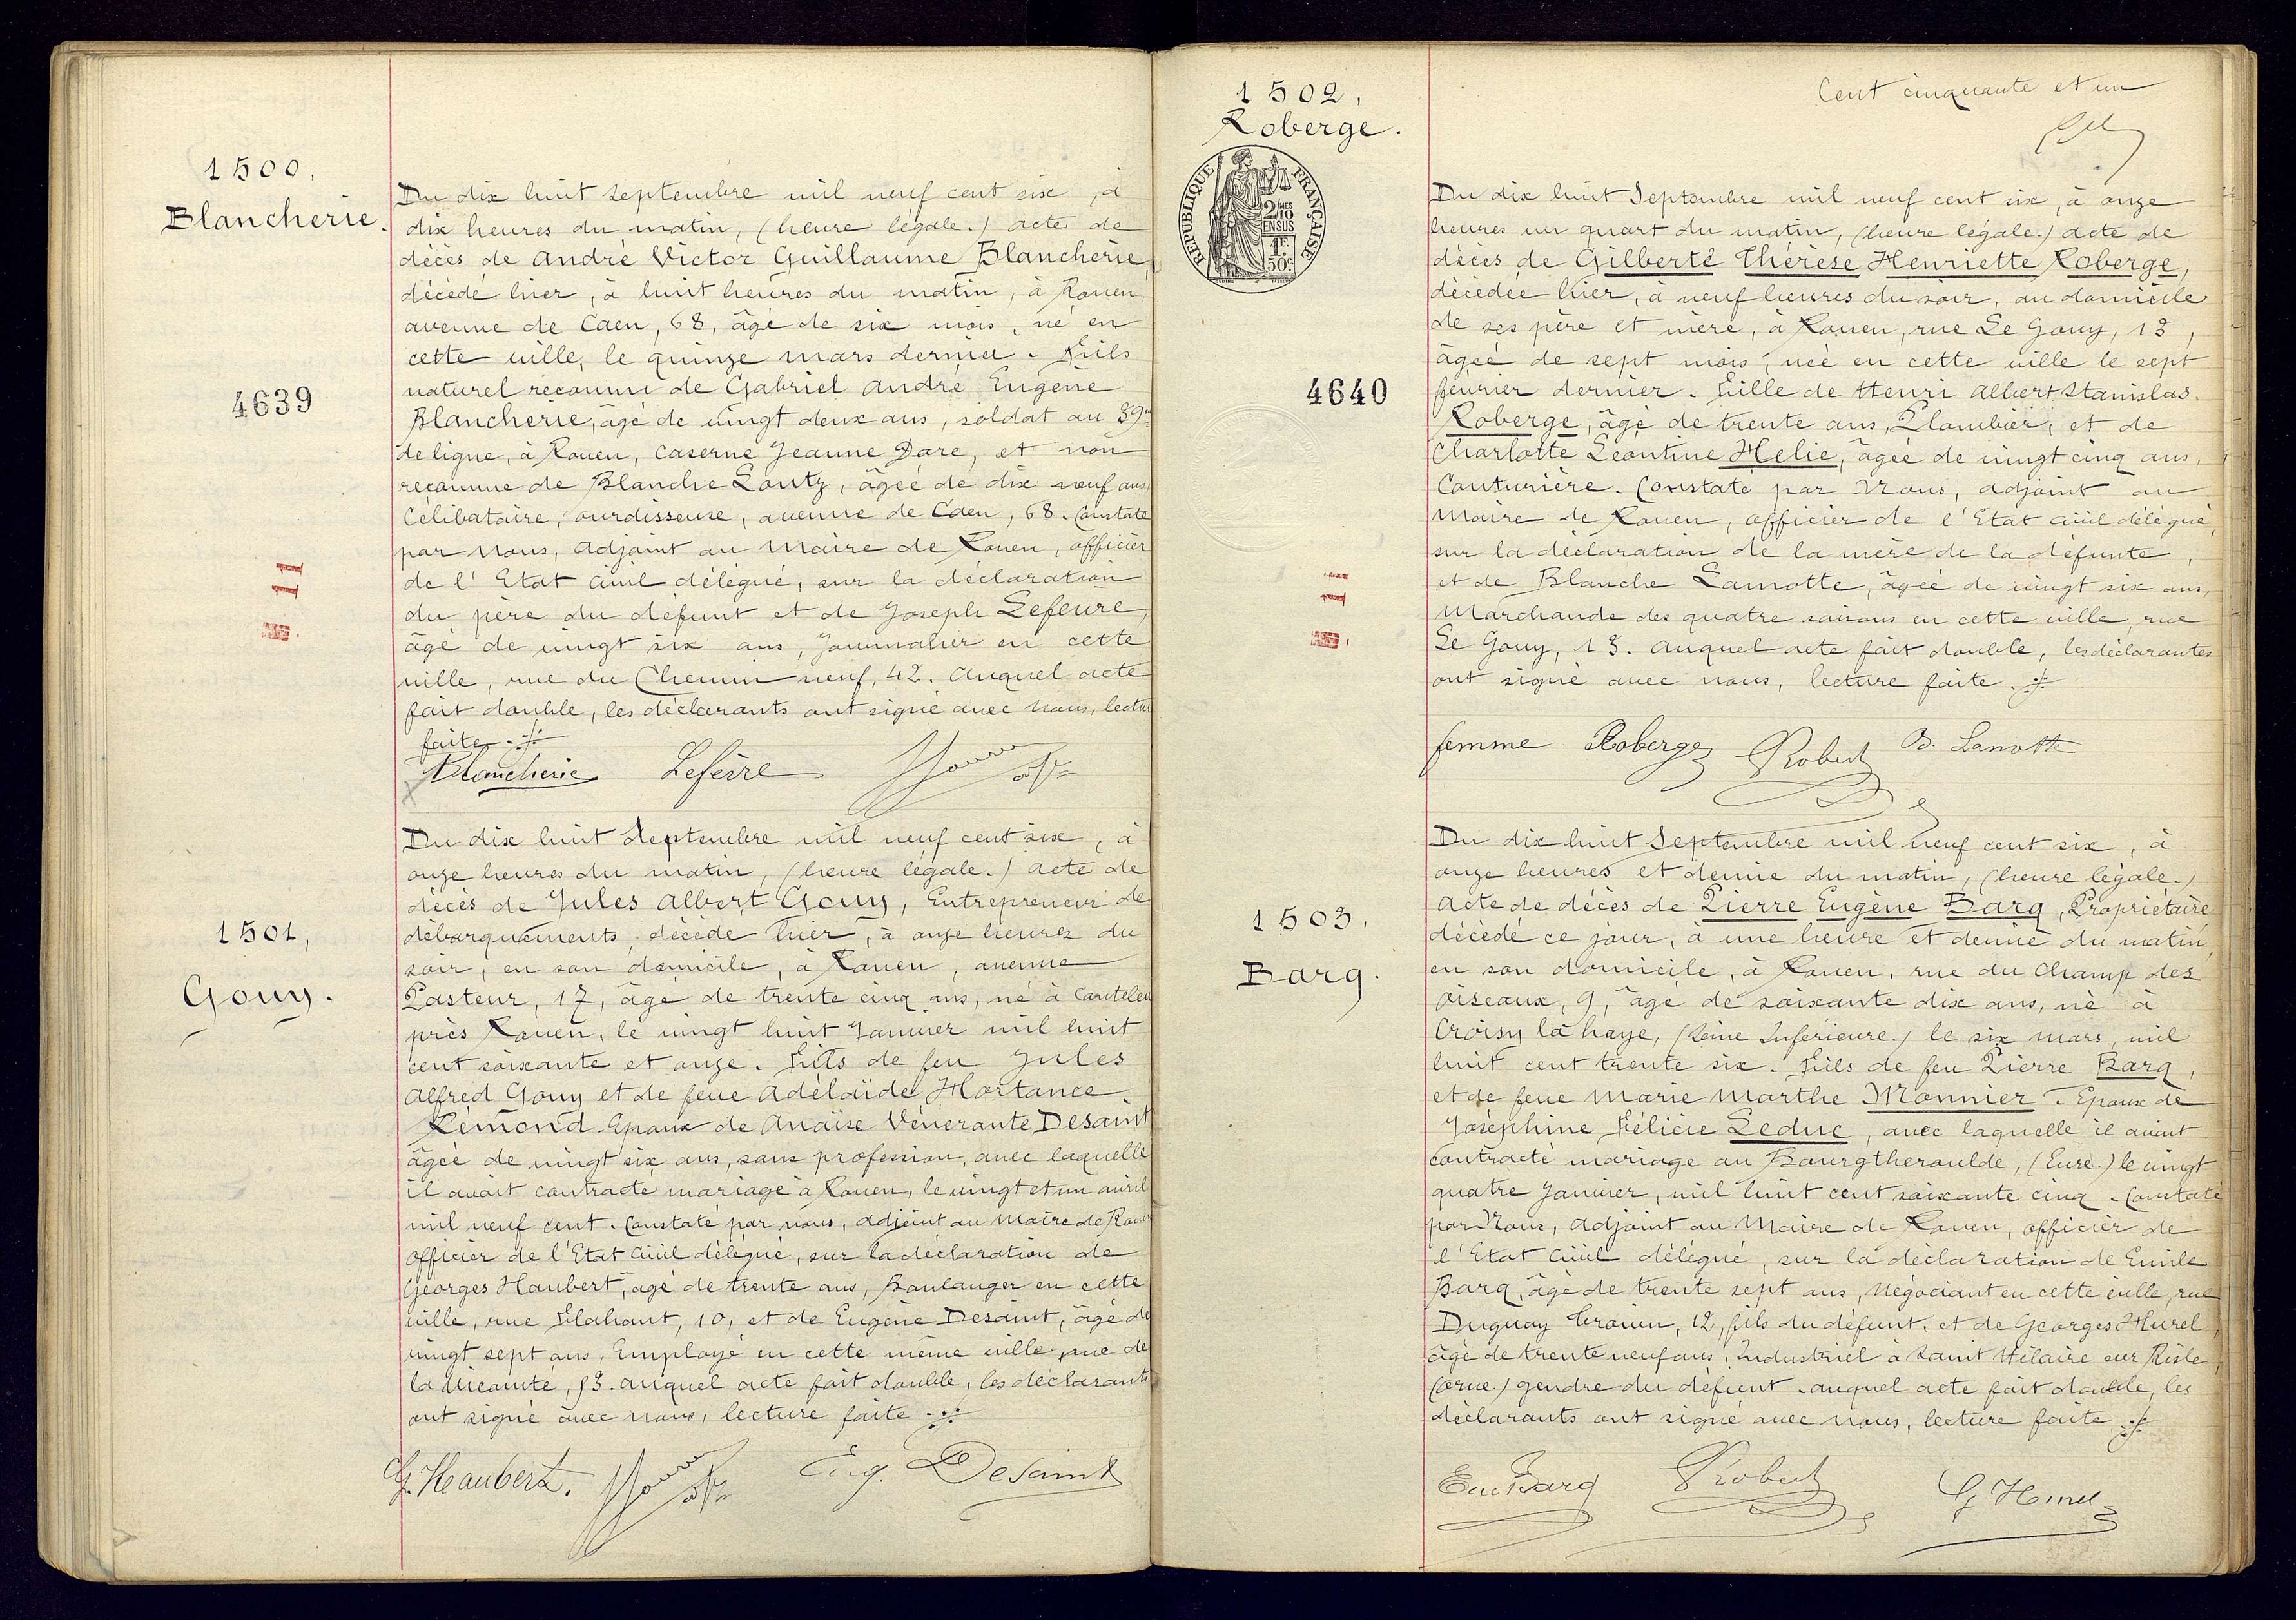 1500.
Blancherie.
4639
11
Du dix huit septembre mil neuf cent six, à
dix heures du matin, (heure légale.) acte de
décès de André Victor Guillaume Blancherie,
décédé hier, à huit heures du matin, à Rouen
avenue de Caen, 68, âgé de six mois, né en
cette ville, le quinze mars dernier. Fils
naturel reconnu de Gabriel André Eugène
Blancherie, âgé de vingt deux ans, soldat au 39e
de ligne, à Rouen, caserne Jeanne Darc, et non
reconnue de Blanche Loutz, âgée de dix neuf ans,
Célibataire, ourdisseuse, avenue de Caen, 68. Constaté
par Nous, adjoint au Maire de Rouen, officier
de l'Etat Civil délégué, sur la déclaration
du père du défunt et de Joseph Lefevre,
âgé de vingt six ans, Journalier en cette
ville, rue du Chemin neuf, 42. Auquel acte
fait double, les déclarants ont signé avec Nous, lecture
faite.
Blancherie Lefèvre
1501,
Gouy.
Du dix huit Septembre mil neuf cent six, à
onze heures du matin, (heure légale.) acte de
décès de Jules Albert Gouy, Entrepreneur de
débarquements, décédé hier, à onze heures du
soir, en son domicile, à Rouen, avenue
Pasteur, 17, âgé de trente cinq ans, né à Canteleu
près Rouen, le vingt huit Janvier mil huit
cent soixante et onze. Fils de feu Jules
Alfred Gouy et de feue Adélaïde Hortance
Rémond. Epoux de Anaïse Vénérante Desaint
âgée de vingt six ans, sans profession, avec laquelle
il avait contracté mariage à Rouen, le vingt et un avril
mil neuf cent. Constaté par nous, adjoint au Maire de Rouen
officier de l'Etat Civil délégué, sur la déclaration de
Georges Haubert, âgé de trente ans, Boulanger en cette
ville, rue Flahaut, 10, et de Eugène Desaint, âgé de
vingt sept ans, Employé en cette même ville, rue de
la Vicomté, 93. Auquel acte fait double, les déclarants
ont signé avec nous, lecture faite.
G. Haubert. Eug. Desaint
Cent cinquante et un
1502,
Roberge.
REPUBLIQUE FRANÇAISE
2/10
MES
EN SUS
1F.
50c
4640
11
Du dix huit Septembre mil neuf cent six, à onze
heures un quart du matin, (heure légale.) acte de
décès de Gilberte Thérèse Henriette Roberge,
décédée hier, à neuf heures du soir, au domicile
de ses père et mère, à Rouen, rue Le Gouy, 13,
âgée de sept mois, née en cette ville le sept
février dernier. Fille de Henri Albert Stanislas
Roberge, âgé de trente ans, Plombier, et de
Charlotte Léontine Helie, âgée de vingt cinq ans,
Couturière. Constaté par Nous, adjoint au
Maire de Rouen, officier de l'Etat Civil délégué,
sur la déclaration de la mère de la défunte,
et de Blanche Lamotte, âgée de vingt six ans,
Marchande des quatre saisons en cette ville, rue
Le Gouy, 13. Auquel acte fait double, les déclarantes
ont signé avec nous, lecture faite.
femme Roberge Robert B. Lamotte
1503,
Barq.
Du dix huit Septembre mil neuf cent six, à
onze heures et demie du matin, (heure légale.)
Acte de décès de Pierre Eugène Barq, Propriétaire
décédé ce jour, à une heure et demie du matin,
en son domicile, à Rouen, rue du Champ des
Oiseaux, 9, âgé de soixante dix ans, né à
Croisy la haye, (Seine Inférieure.) le six mars, mil
huit cent trente six. Fils de feu Pierre Barq,
et de feue Marie Marthe Monnier. Epoux de
Joséphine Félicie Leduc, avec laquelle il avait
contracté mariage au Bourgtheroulde, (Eure.) le vingt
quatre Janvier, mil huit cent soixante cinq. Constaté
par Nous, adjoint au Maire de Rouen, officier de
l'Etat Civil délégué, sur la déclaration de Emile
Barq, âgé de trente sept ans, Négociant en cette ville, rue
Duguay Trouin, 12, fils du défunt, et de Georges Hurel,
âgé de trente neuf ans, Industriel à Saint Hilaire sur Risle,
(Orne.) gendre du défunt. Auquel acte fait double, les
déclarants ont signé avec nous, lecture faite.
Em Barq Robert G Hurel